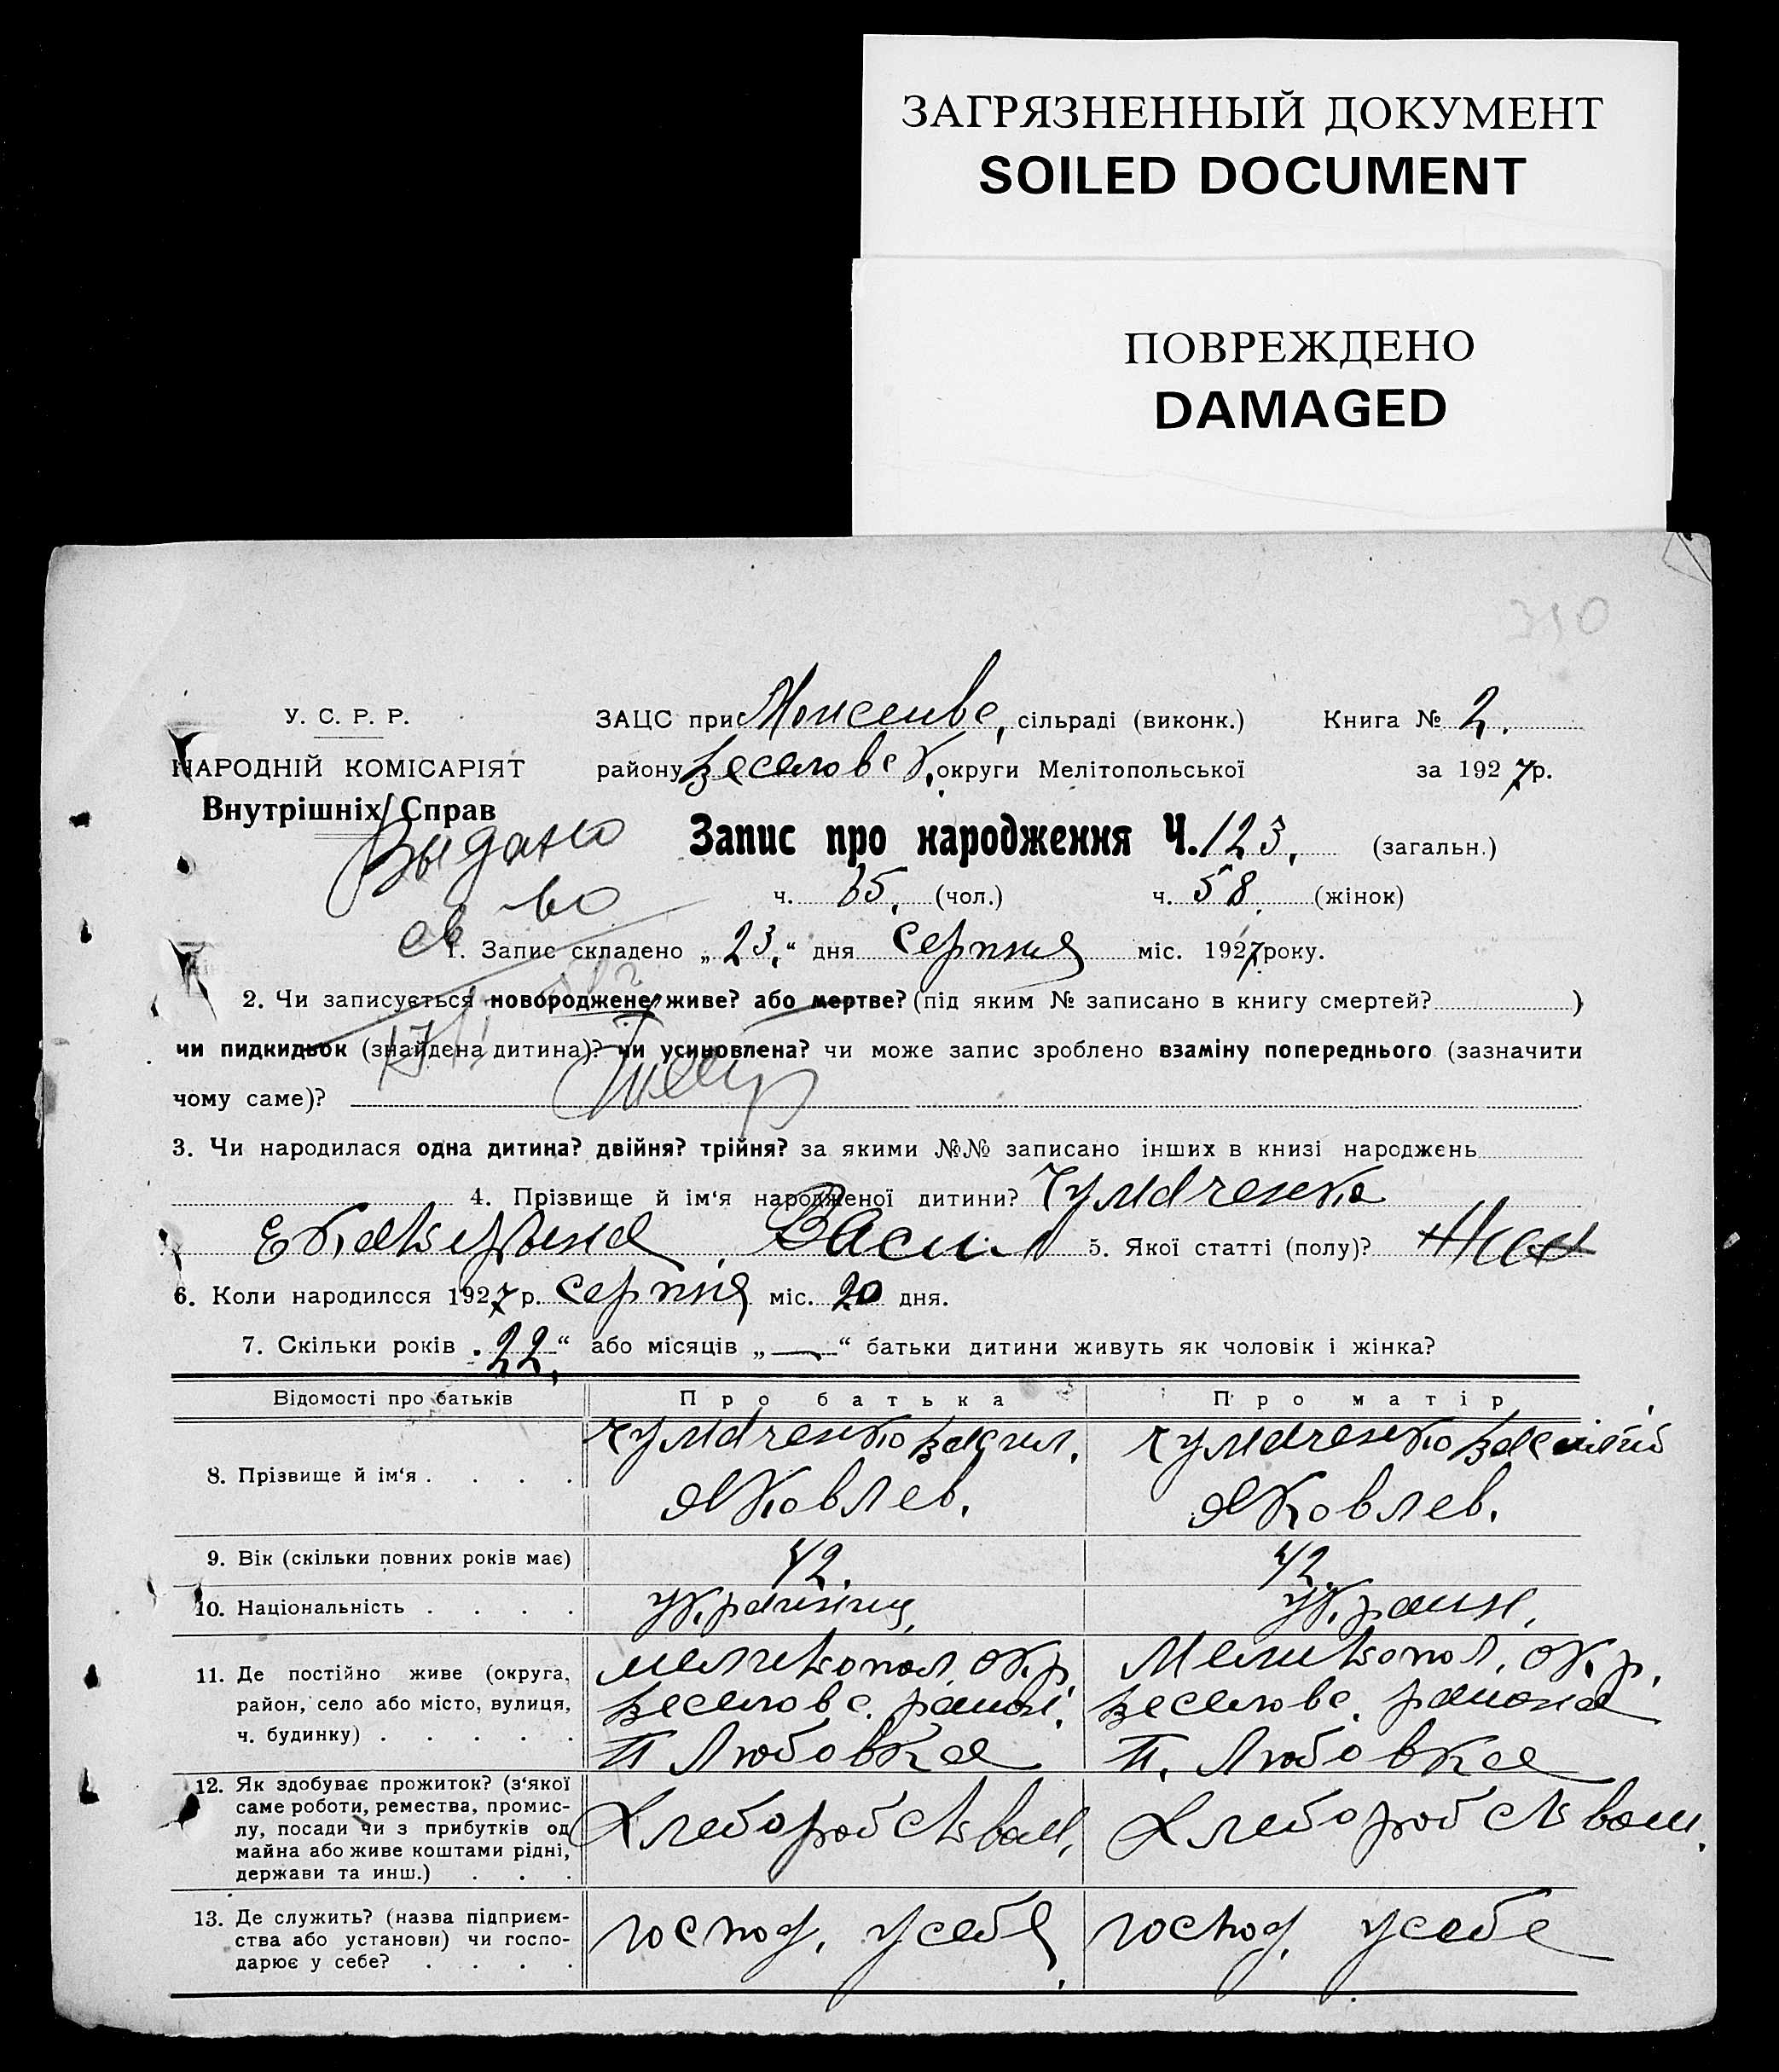 ЗАГРЯЗНЕННЫЙ ДОКУМЕНТ
SOILED DOCUMENT
ПОВРЕЖДЕНО
DAMAGED
У. С. Р. Р.
НАРОДНІЙ КОМІСАРІЯТ
Внутрішніх Справ
ЗАЦС при сільраді (виконк.) Книга № 2.
району Веселовск. округи Мелітопольської за 1927 р.
Выдано
Запис про народження Ч. 123. (загальн.)
ч. 65. (чол.) ч. 58. (жінок)
св во
1. Запис складено „23.“ дня серпня міс. 1927 року.
2. Чи записується новороджене живе? або мертве? (під яким № записано в книгу смертей? )
чи пидкидьок (знайдена дитина)? чи усиновлена? чи може запис зроблено взаміну попереднього (зазначити
чому саме)?
3. Чи народилася одна дитина? двійня? трійня? за якими №№ записано інших в книзі народжень
4. Прізвище й ім‘я народженої дитини? Чумаченко
Екатерина Васил 5. Якої статті (полу)? Жен
6. Коли народилося 1927 р. серпня міс. 20 дня.
7. Скільки років „22.“ або місяців „—“ батьки дитини живуть як чоловік і жінка?
Відомості про батьків Про батька Про матір
8. Прізвище й ім‘я . . . . Чумаченко Васил. Яковлев. Чумаченко Яковлев.
9. Вік (скільки повних років має) 42. 42.
10. Національність . . . . українц. украин.
11. Де постійно живе (округа,
район, село або місто, вулиця,
ч. будинку) . . . . .
мелитопол. окр.
Веселовс. район.
п Любовка
Мелитопол. окр.
Веселовс. района
п. Любовка
12. Як здобуває прожиток? (з‘якої
саме роботи, ремества, промис-
лу, посади чи з прибутків од
майна або живе коштами рідні,
держави та инш.) . . .
Хлеборобством. Хлеборобством.
13. Де служить? (назва підприєм-
ства або установи) чи госпо-
дарює у себе? . . . .
господ. у себе господ. у себе